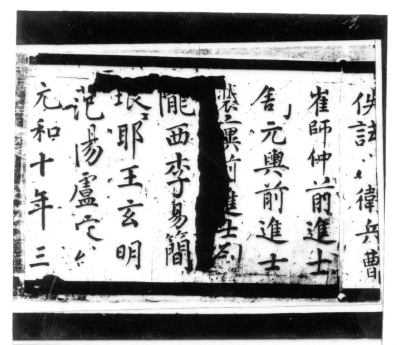 試衛兵曹
崔師仲前進士
元輿前進士
前進士劉
隴西李易簡
琅耶王玄明
范陽盧
元和十年三